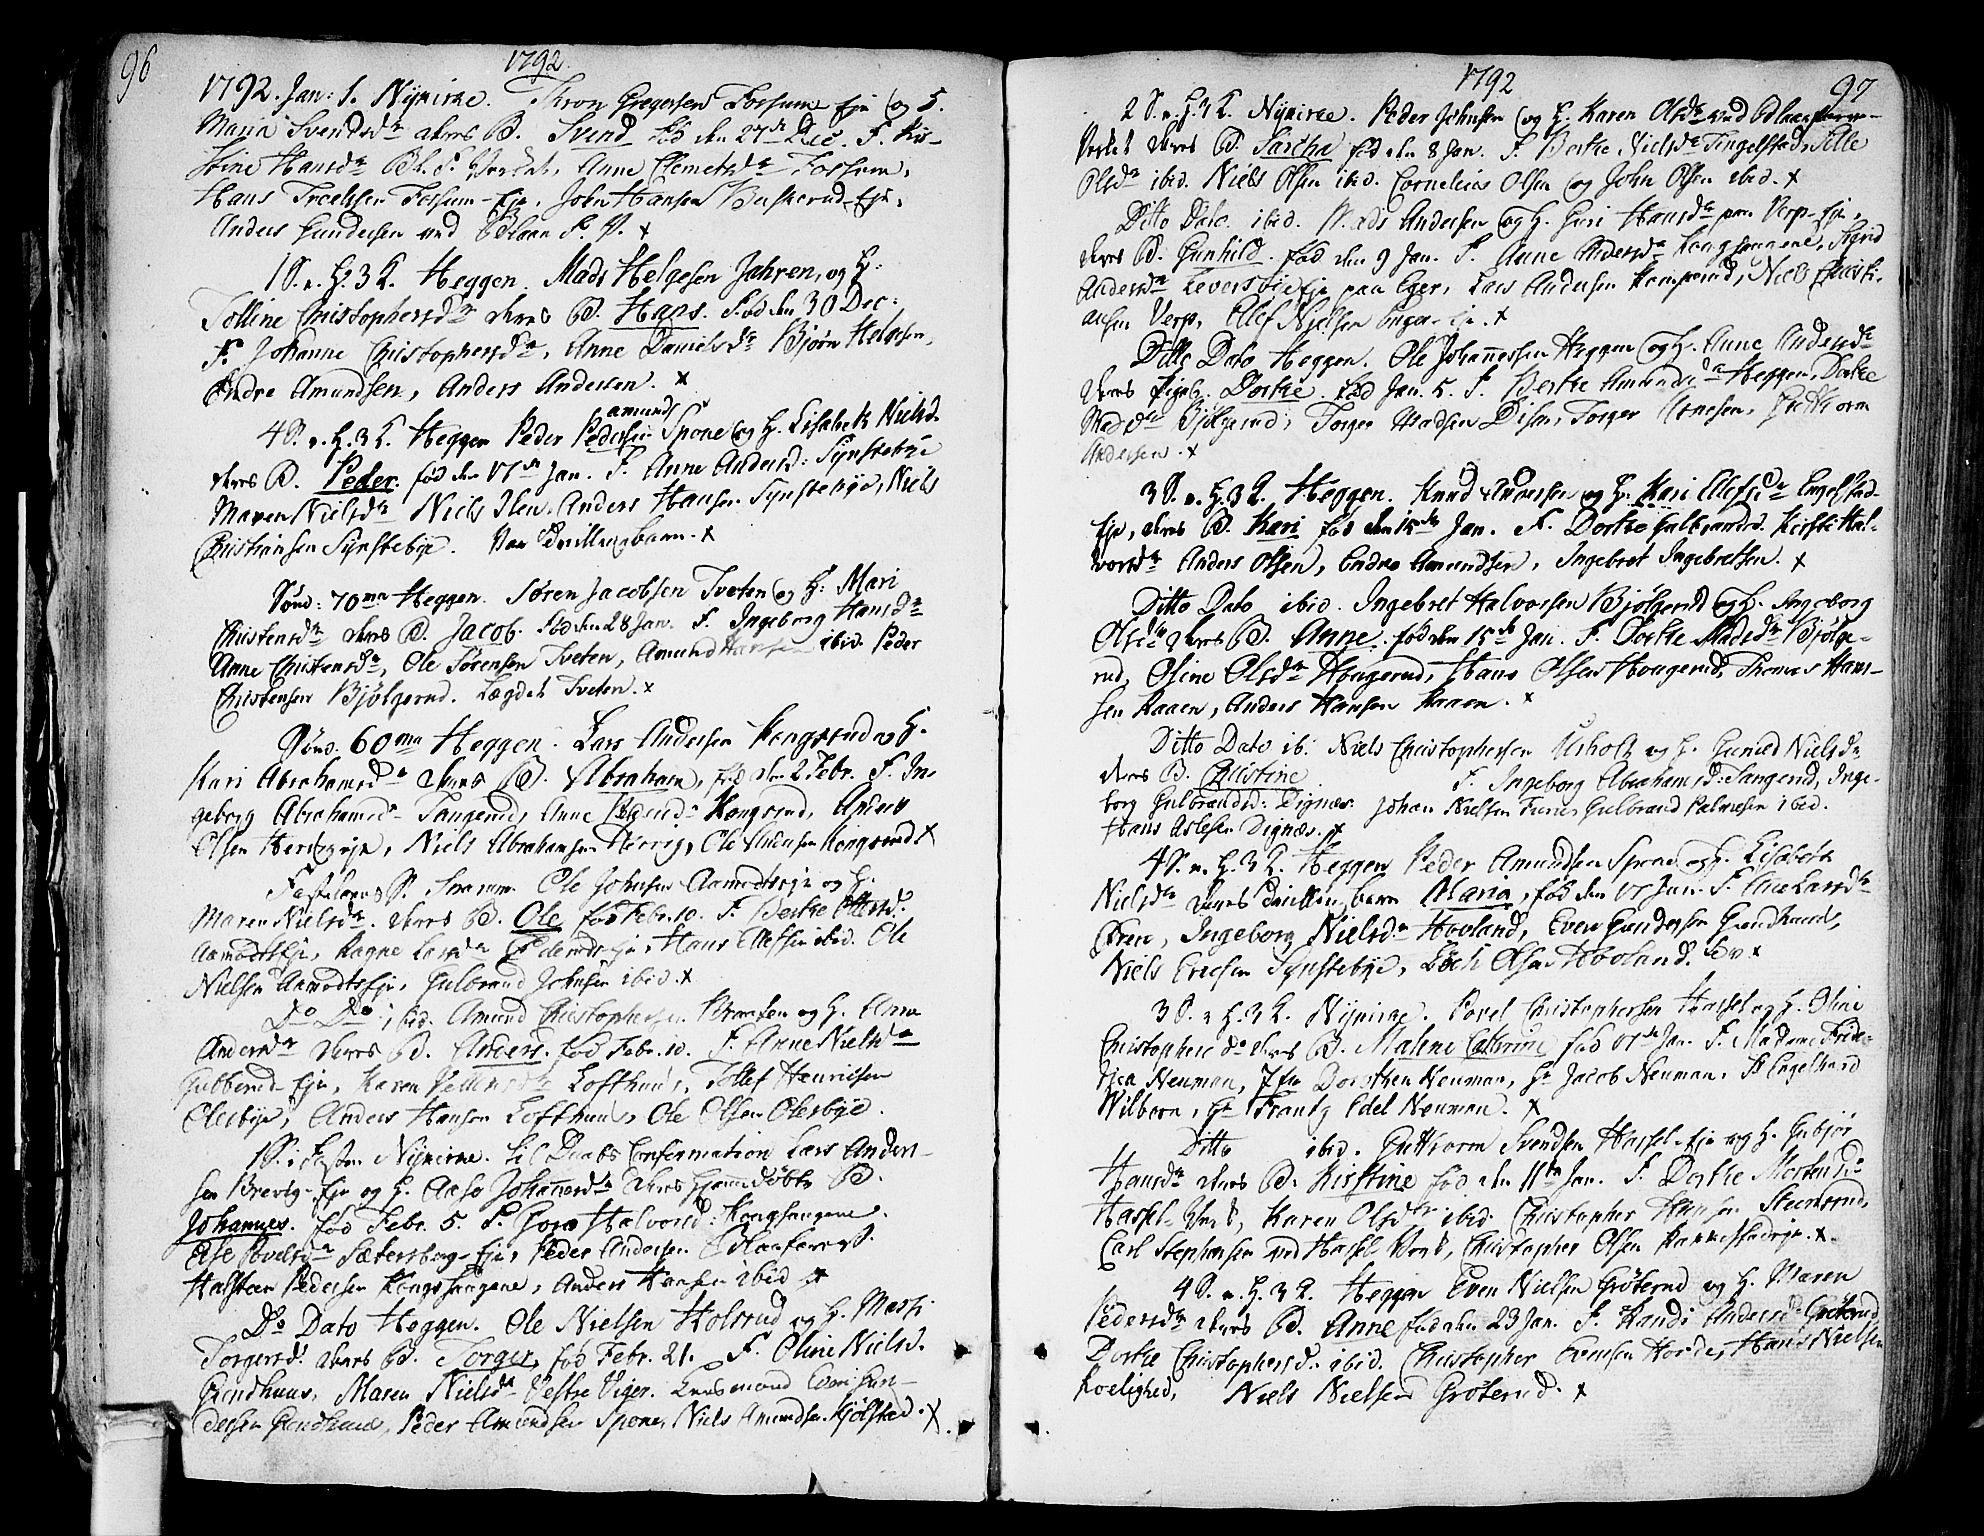 96
1792.
1792. Jan: 1. Nykirke. Thron Gregersen Fossum Eje og H.
Maria Svendsdr deres B. Svend fød den 27de Dec. F. Kir-
stine Hansdr Bl. F. Verket, Anne Clemetsdr Fossum,
Hans Troelsen Fossum-Eje, John Hansen Buskerud-Eje,
Anders Gundersen ved Blaae F. V. x
1 S. e. H. 3 K. Heggen. Mads Helgesen Jahren, og H:
Tolline Christophersdr deres B. Hans. Fød den 30 Dec:
F. Johanne Christophersdr, Anne Danielsdr Bjørn Helgesen,
Endre Amundsen, Anders Andersen. x
amunds
4 S. e. H. 3 K. Heggen Peder Pedersen Spone og H. Lisabeth Nielsd.
deres B. Peder. fød den 17de Jan. F. Anne Andersd: Synstebye
Maren Nielsdr Niels Ilen. Anders Hansen Synstebye, Niels
Christiansen Synstebye. Var Tvillingbarn. x
Sønd: 70ma Heggen. Søren Jacobsen Tveten og H: Mari
Christensdr deres B. Jacob. fød den 28 Jan. F. Ingeborg Hansdr
Anne Christensdr, Ole Sørensen Tveten, Amund Hansen ibid. Peder
Christensen Bjølgerud. Lægdet Tveten. x
Sønd. 60ma Heggen. Lars Andersen Kongsrud og H.
Kari Abrahamsdr deres B. Abraham, fød den 2 Febr. F. In-
geborg Abrahamsdr Tangerud, Anne Kongsrud, Anders
Olsen, Niels Abrahamsen, Ole Andersen Kongsrud x
Fastelavns S. Snarum. Ole Johnsen Aamodtseje og H.
Maren Nielsdr. deres B. Ole fød Febr. 10. F. Berthe Ellefsd.
Aamodtseje, Ragne Larsdr, Hans Ellefsen ibid. Ole
Nielsen Aamodtseje, Gulbrand Johnsen ibid. x
Do Do ibid. Amund Christophersen Braaten og H. Anne
Andersdr deres B. Anders. fød Febr. 10. F. Anne Nielsdr
Gubberud-Eje, Karen Lofthuus, Tollef Henrichsen
Olesbye, Anders Hansen Lofthuus, Ole Olsen Olesbye.
1 S. i Fasten Nykirke. til Daabs Confirmation Lars Ander-
sen Brevig-Eje og H. Aase Johannesdr deres hjemmedøbte B.
Johannes. fød Febr. 5. F. Halvorsd: Kongsangene.
Else Povelsdr Sætersberg-Eje, Peder Andersen
Halsteen Pedersen Kongsangene, Anders Hansen ibid x
Do Dato Heggen. Ole Nielsen Holsrud og H. Marthe
Torgersd. deres B. Torger, fød Febr. 21. F. Oline Nielsd.
Grindhuus, Maren Nielsdr Vestre Viger. Even Gun-
dersen Grindhuus, Peder Amundsen Spone, Niels Amundsen Kjølstad. x
1792
97
2 S. e. H. 3 K. Nykirke. Peder Johnsen og H. Karen Olsdr ved Blaafarve-
Verket deres B. fød den 8 Jan. F. Berthe Nielsdr Tingelstad, Sille
Olsdr ibid. Niels Olsen ibid. Cornelius Olsen og John Olsen ibid. x
Ditto Dato. ibid. Mads Andersen og H. Guri Hansdr paa Verp-Eje,
deres B. Gunhild. fød den 9 Jan. F. Anne Andersdr Kongsangene, Sigrid
Andersdr paa Eger, Lars Andersen, Niels Christi-
ansen Verp, Ellef Nielsen x
Ditto Dato Heggen. Ole Johannessen Heggen og H. Anne Andersdr
deres Pigeb. Dorthe. fød Jan. 5. F. Berthe Amundsdr Heggen, Dorthe
Madsdr Bjølgerud, Torger Madsen Disen, Torger Arnesen, Gutthorm
Andersen. x
3 S. e. H. 3 K. Heggen. Knud Andersen og H. Kari Ellefsdr Engelstad-
Eje, deres B. Kari fød den 15de Jan. F. Dorthe Gulbrandsd. Kirsti Hal-
vorsdr Anders Olsen, Endre Amundsen, Ingebret Ingebretsen. x
Ditto Dato ibid. Ingebret Halvorsen Bjølgerud og H. Ingeborg
Olsdr deres B. Anne. fød den 15de Jan. F. Dorthe Madsdr Bjølge-
rud, Oline Olsdr Hougerud, Hans Olsen Hougerud, Thomas Han-
sen Kaaen, Anders Hansen Kaaen. x
Ditto Dato ib: Niels Christophersen og H. Gunild Nielsdr
deres B. Christine F. Ingeborg Abrahamsd: Tangerud, Inge-
borg Gulbrandsd: Dignæs. Johan Nielsen, Gulbrand Palmesen ibid.
Hans Aslesen Dignæs. x
4 S. e. H. 3 K. Heggen Peder Amundsen Spone og H. Lisabeth
Nielsdr deres Tvilling barn Maria, fød den 17 Jan. F. Larsdr
Iren, Ingeborg Nielsdr Hovland, Even Gundersen Grindhuus,
Niels Ericsen Synstebye, Olsen Hovland. x
3 S. e. H. 3 K. Nykirke. Povel Christophersen Hassel og H. Oline
Christophersdr deres B. Malene Cathrine fød 17de Jan. F. Madame Fride-
rica Neuman, Jfr Dorothea Neuman, Hr Jacob Neuman. Hr Engelhard
Wilborn, Hr Frantz Edel Neuman. x
Ditto ibid. Gutthorm Svendsen Hassel-Eje og H. Gubjør
Hansdr deres B. Kirstine fød den 11te Jan. F. Dorthe Mortensdr
Hassel-Verk, Karen Olsdr ibid. Christopher Hansen Steensrud,
Carl Stephensen ved Hassel Verk, Christopher Olsen x
4 S. e. H. 3 K. Heggen Even Nielsen Grøterud og H. Maren
Pedersdr deres B. Anne fød den 23 Jan. F. Randi Andersdr Grøterud
Dorthe Christophersd. ibid. Christopher Evensen Horde, Hans Nielsen
Roelighed, Niels Nielsen Grøterud. x